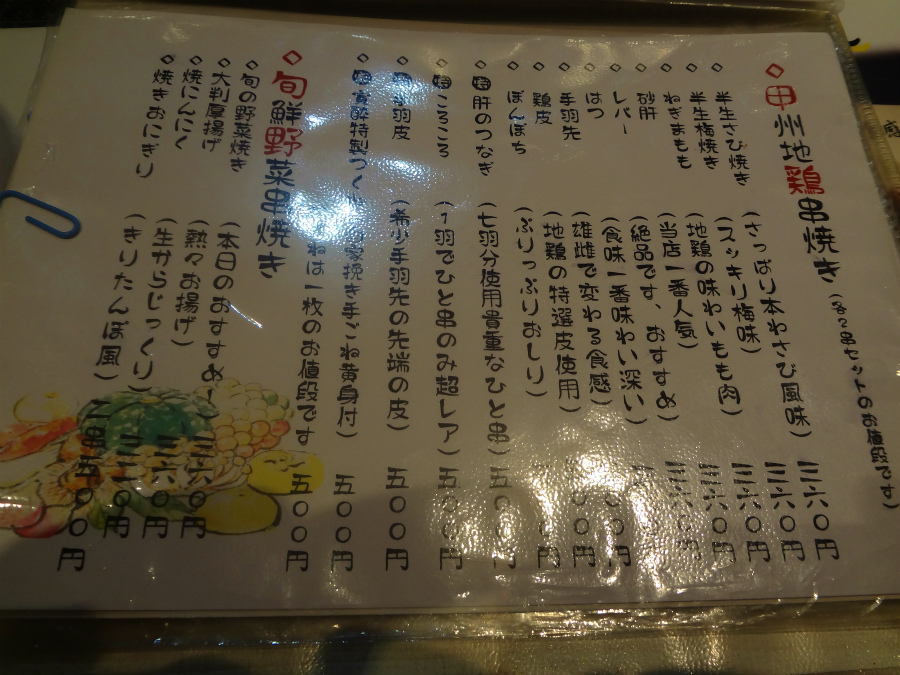 甲州地鶏串焼き (各2串セットのお値段です)
◇半生さび焼き (さっぱり本わさび風味) 三六〇円
◇半生梅焼き (スッキリ梅味) 三六〇円
◇ねぎまもも (地鶏の味わいもも肉) 三六〇円
◇砂肝 (当店一番人気) 三六〇円
◇レバー (絶品です、おすすめ) 三六〇円
◇はつ (食味一番味わい深い)
◇手羽先 (雄雌で変わる食感)
◇鶏皮 (地鶏の特選皮使用)
◇ぼんぼち (ぷりっぷりおしり)
◇肝のつなぎ (七羽分使用貴重なひと串) 五〇〇円
◇ころころ (1羽でひと串のみ超レア) 五〇〇円
◇手羽皮 (希少手羽先の先端の皮) 五〇〇円
◇特製つくね 挽き手ごね黄身付) 五〇〇円
ねは一枚のお値段です 五〇〇円
◇旬鮮野菜串焼き
◇旬の野菜焼き (本日のおすすめ)
◇大判厚揚げ (熱々お揚げ) 三六〇円
◇焼にんにく (生からじっくり) 三六〇円
◇焼きおにぎり (きりたんぽ風)